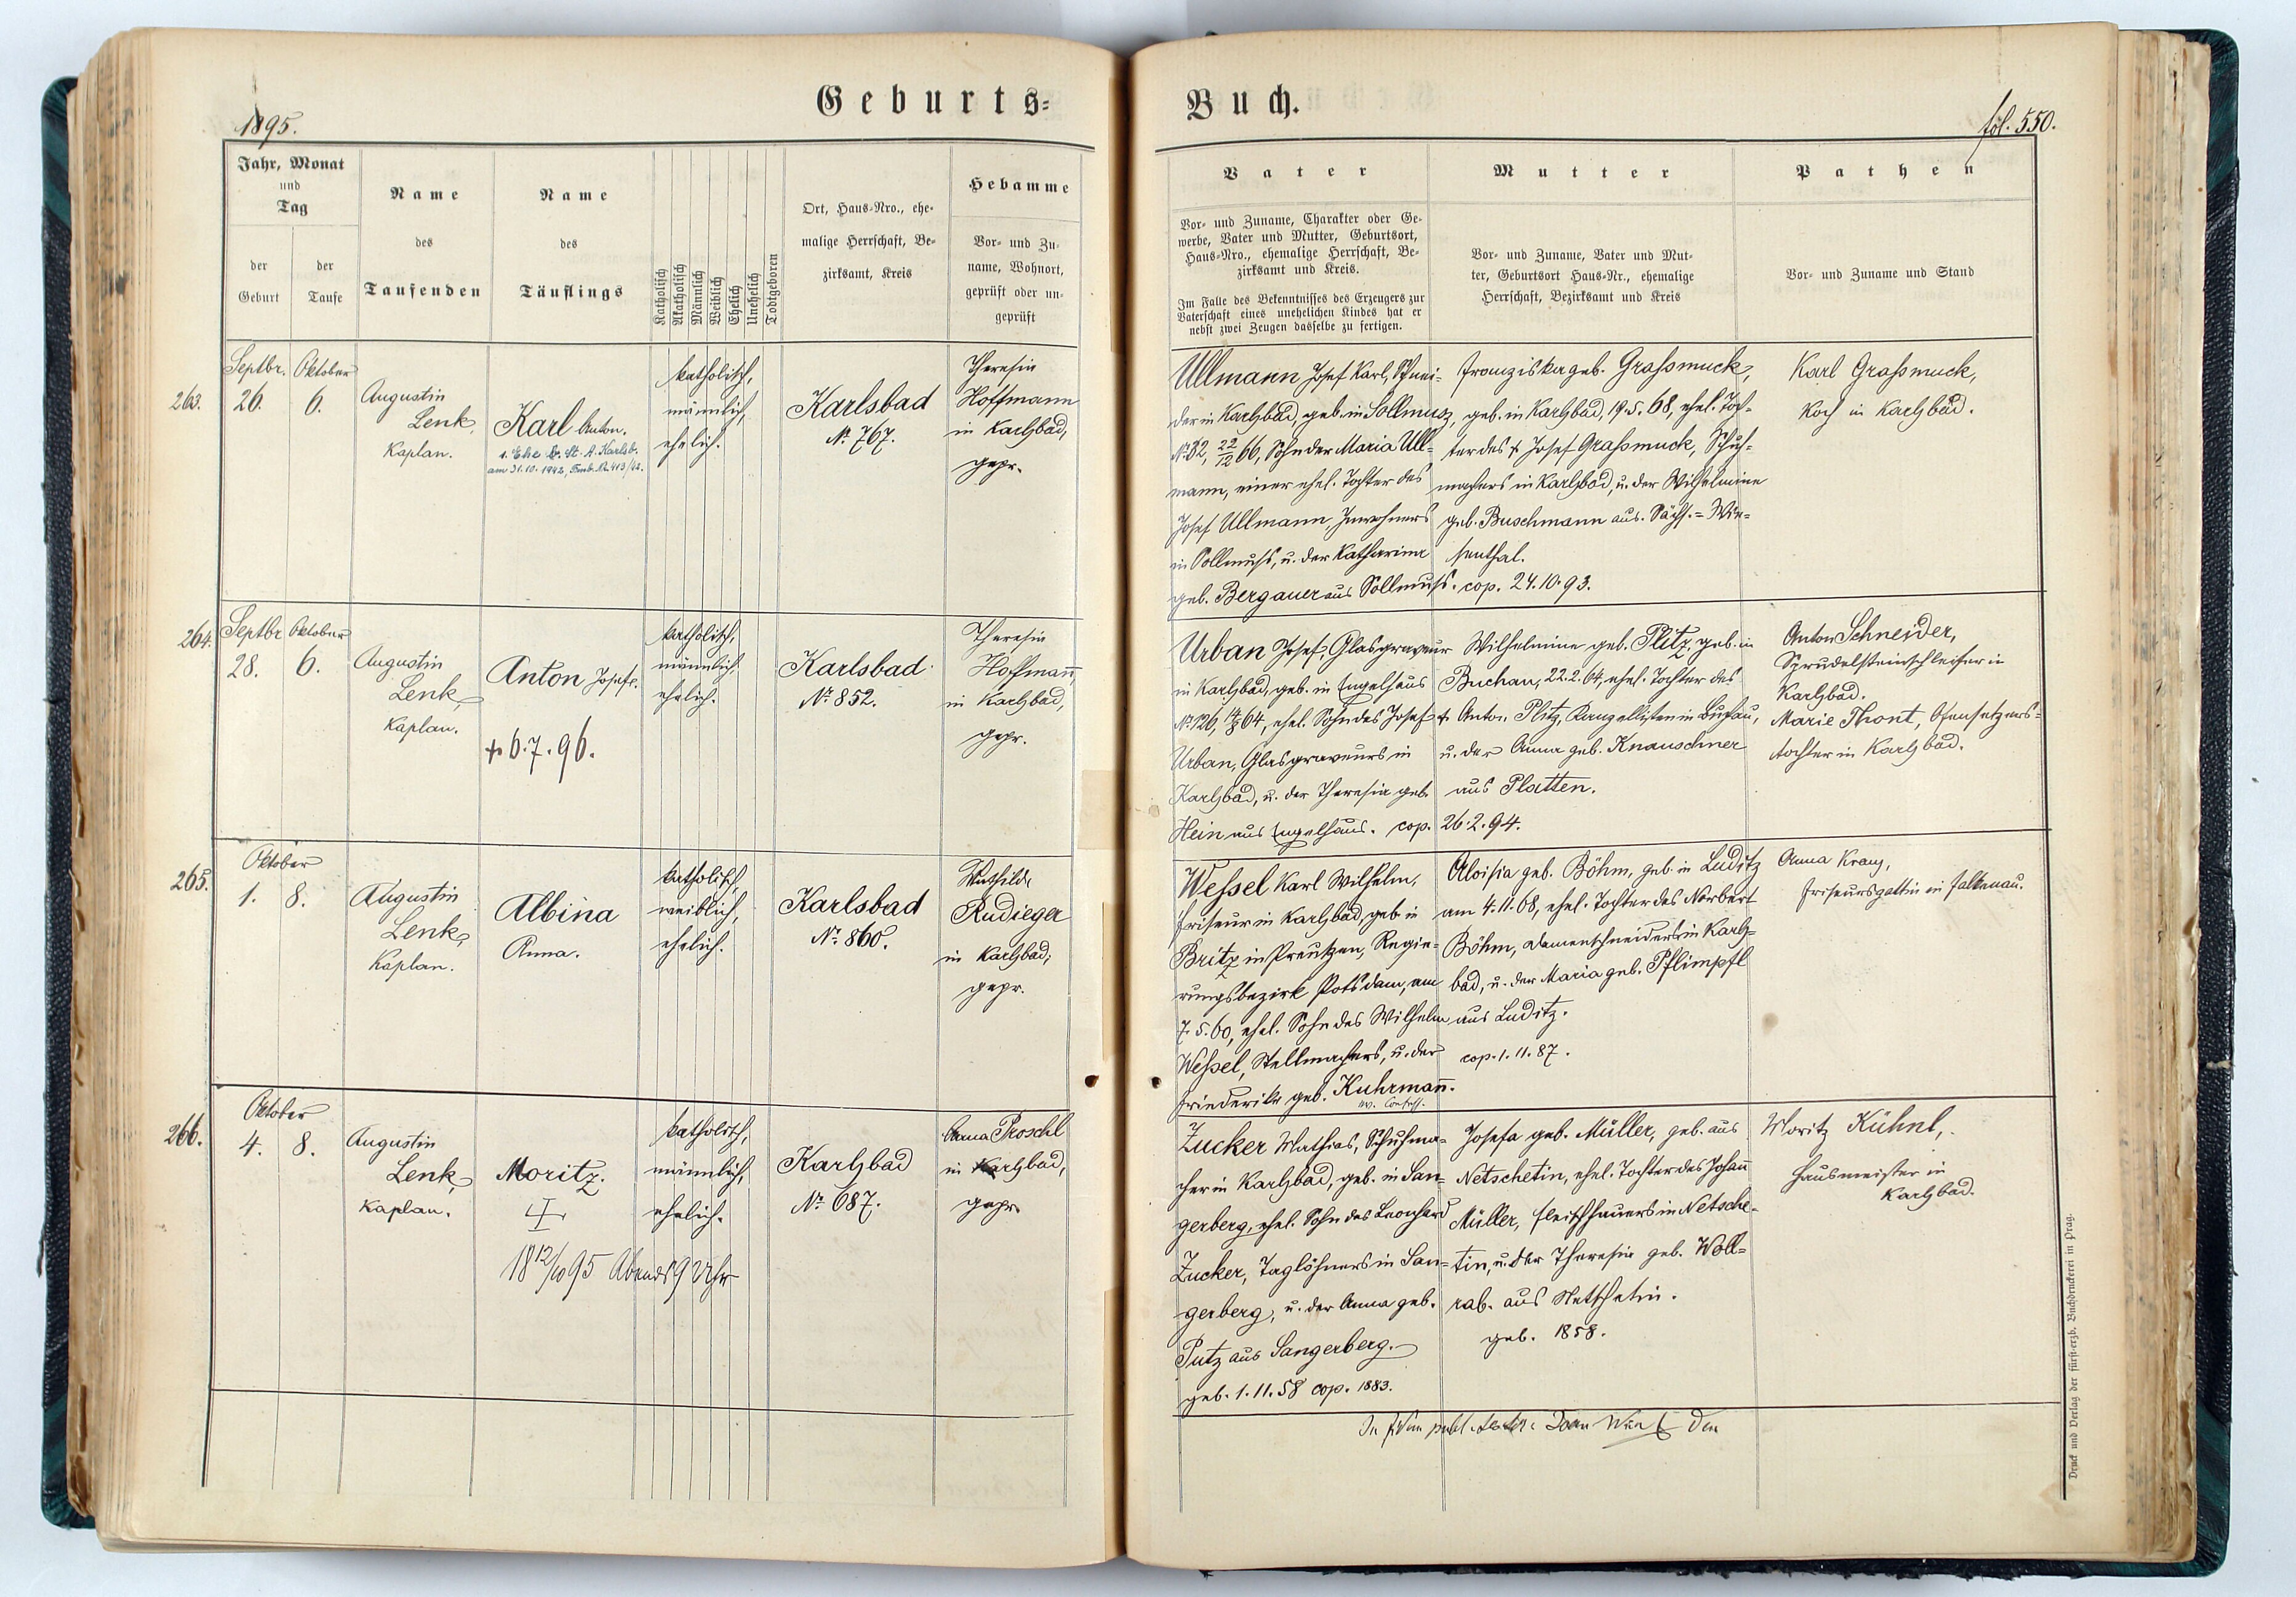 Geburts-
Buch.
1895.
fol. 550.
Jahr, Monat
und
Tag
der
Geburt
der
Taufe
Name
des
Taufenden
Name
des
Täuflings
Katholisch
Akatholisch
Männlich
Weiblich
Ehelich
Unehelich
Todtgeboren
Ort, Haus-Nro., ehe-
malige Herrschaft, Be-
zirksamt, Kreis
Hebamme
Vor- und Zu-
name, Wohnort,
geprüft oder un-
geprüft
Vater
Vor- und Zuname, Charakter oder Ge-
werbe, Vater und Mutter, Geburtsort,
Haus-Nro., ehemalige Herrschaft, Be-
zirksamt und Kreis.
Im Falle des Bekenntnisses des Erzeugers zur
Vaterschaft eines unehelichen Kindes hat er
nebst zwei Zeugen dasselbe zu fertigen.
Mutter
Vor- und Zuname, Vater und Mut-
ter, Geburtsort Haus-Nr., ehemalige
Herrschaft, Bezirksamt und Kreis
Pathen
Vor- und Zuname und Stand
263.
Septbr.
26.
Oktober
6.
Augustin
Lenk,
Kaplan.
Karl Anton.
1. Ehe b. St. A. Karlsb.
am 31.10.1942, Fmb. Nr. 413/42.
katholisch,
männlich,
ehelich.
Karlsbad
No. 767.
Theresia
Hoffmann
in Karlsbad,
gepr.
Ullmann Josef Karl, Schnei-
der in Karlsbad, geb. in Sollmus,
No. 82, 22/12 66, Sohn der Maria Ull-
mann, einer ehel. Tochter des
Josef Ullmann, Inwohners
in Sollmuss, u. der Katharina
geb. Bergauer aus Sollmuss.
Franziska geb. Grassmuck,
geb. in Karlsbad, 19.5.68, ehel. Toch-
ter des † Josef Grassmuck, Schuh-
machers in Karlsbad, u. der Wilhelmine
geb. Buschmann aus Sächs.-Wie-
senthal.
cop. 24.10.93.
Karl Grassmuck,
Koch in Karlsbad.
264.
Septbr
28.
Oktober
6.
Augustin
Lenk,
Kaplan.
Anton Josef.
† 6.7.96.
katholisch,
männlich,
ehelich.
Karlsbad
No. 852.
Theresia
Hoffmann̄
in Karlsbad,
gepr.
Urban Josef, Glasgraveur
in Karlsbad, geb. in Engelhaus
No. 126, 64, ehel. Sohn des Josef
Urban, Glasgraveurs in
Karlsbad, u. der Theresia geb.
Hein aus Engelhaus. cop.
Wilhelmine geb. Plitz, geb. in
Buchau, 22.2.64, ehel. Tochter des
† Anton Plitz, Kanzellisten in Buchau,
u. der Anna geb. Knauschner
aus Platten.
26.2.94.
Anton Schneider,
Sprudelsteinschleifer in
Karlsbad.
Marie Thont, Ofensetzers-
tochter in Karlsbad.
265.
Oktober
1.
8.
Augustin
Lenk,
Kaplan.
Albina
Anna.
katholisch,
weiblich,
ehelich.
Karlsbad
No. 860.
Mathilde
Rudieger
in Karlsbad,
gepr.
Wessel Karl Wilhelm,
Friseur in Karlsbad, geb. in
Britz in Preußen, Regie-
rungsbezirk Potsdam, am
7.5.60, ehel. Sohn des Wilhelm
Wessel, Stellmachers, u. der
Friederike geb. Kuhrmann̄.
Aloisia geb. Böhm, geb. in Luditz
am 4.11.68, ehel. Tochter des Norbert
Böhm, Damenschneiders in Karls-
bad, u. der Maria geb. Pflimpfl
aus Luditz.
cop. 1.11.87.
Anna Kraus,
Friseursgattin in Falkenau.
266.
Oktober
4.
8.
Augustin
Lenk,
Kaplan.
Moritz.
†
18 12/10 95 Abends 9 Uhr
katholisch,
männlich,
ehelich.
Karlsbad
No. 687.
Anna Proschl
in Karlsbad,
gepr.
Zucker Mathias, Schuhma-
cher in Karlsbad, geb. in San-
gerberg, ehel. Sohn des Leonhard
Zucker, Taglöhners in San-
gerberg, u. der Anna geb.
Putz aus Sangerberg.
geb. 1.11.58 cop. 1883.
Josefa geb. Müller, geb. aus
Netschetin, ehel. Tochter des Johann̄
Müller, Fleischhauers in Netsche-
tin, u. der Theresia geb. Woll-
rab. aus Netschetin.
geb. 1858.
Moritz Kühnl,
Hausmeister in
Karlsbad.
Druck und Verlag der fürst-erzb. Buchdruckerei in Prag.